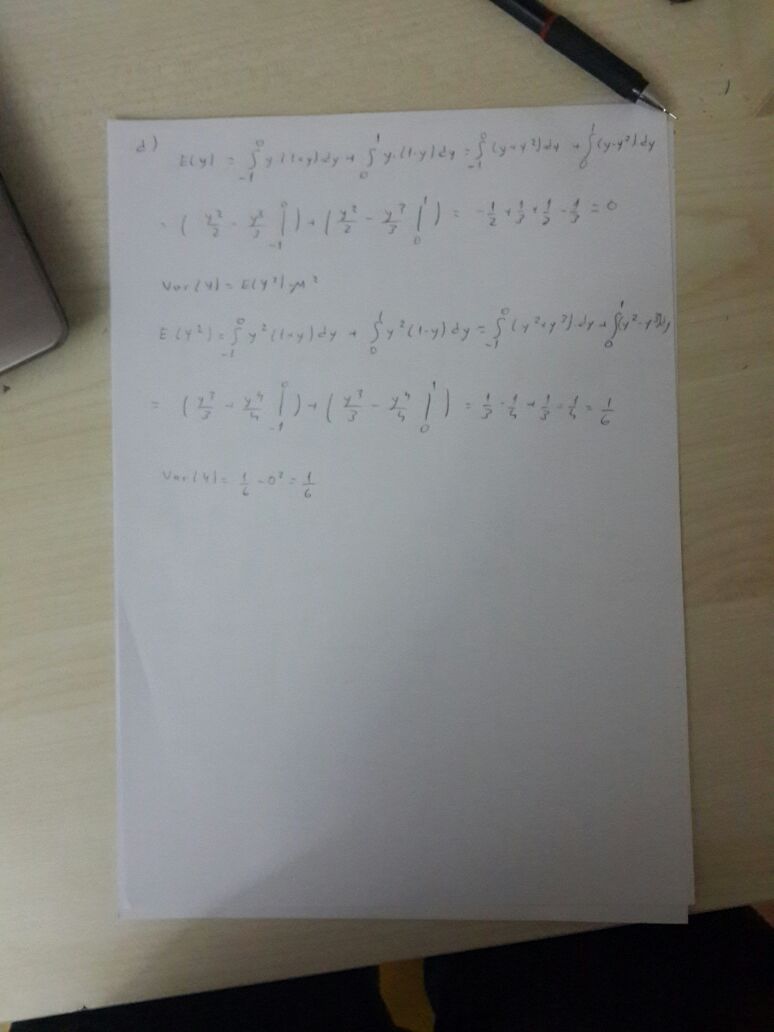 d) E(y) = ∫₋₁⁰ y(1+y)dy + ∫₀¹ y.(1-y)dy = ∫₋₁⁰ (y+y²)dy + ∫₀¹ (y-y²)dy
= ( y²/2 - y³/3 |₋₁⁰ ) + ( y²/2 - y³/3 |₀¹ ) = -1/2 + 1/3 + 1/2 - 1/3 = 0
Var(y) = E(y²)-μ²
E(y²) = ∫₋₁⁰ y²(1+y)dy + ∫₀¹ y²(1-y)dy = ∫₋₁⁰ (y²+y³)dy + ∫₀¹ (y²-y³)dy
= ( y³/3 + y⁴/4 |₋₁⁰ ) + ( y³/3 - y⁴/4 |₀¹ ) = 1/3 - 1/4 + 1/3 - 1/4 = 1/6
Var(y) = 1/6 - 0² = 1/6